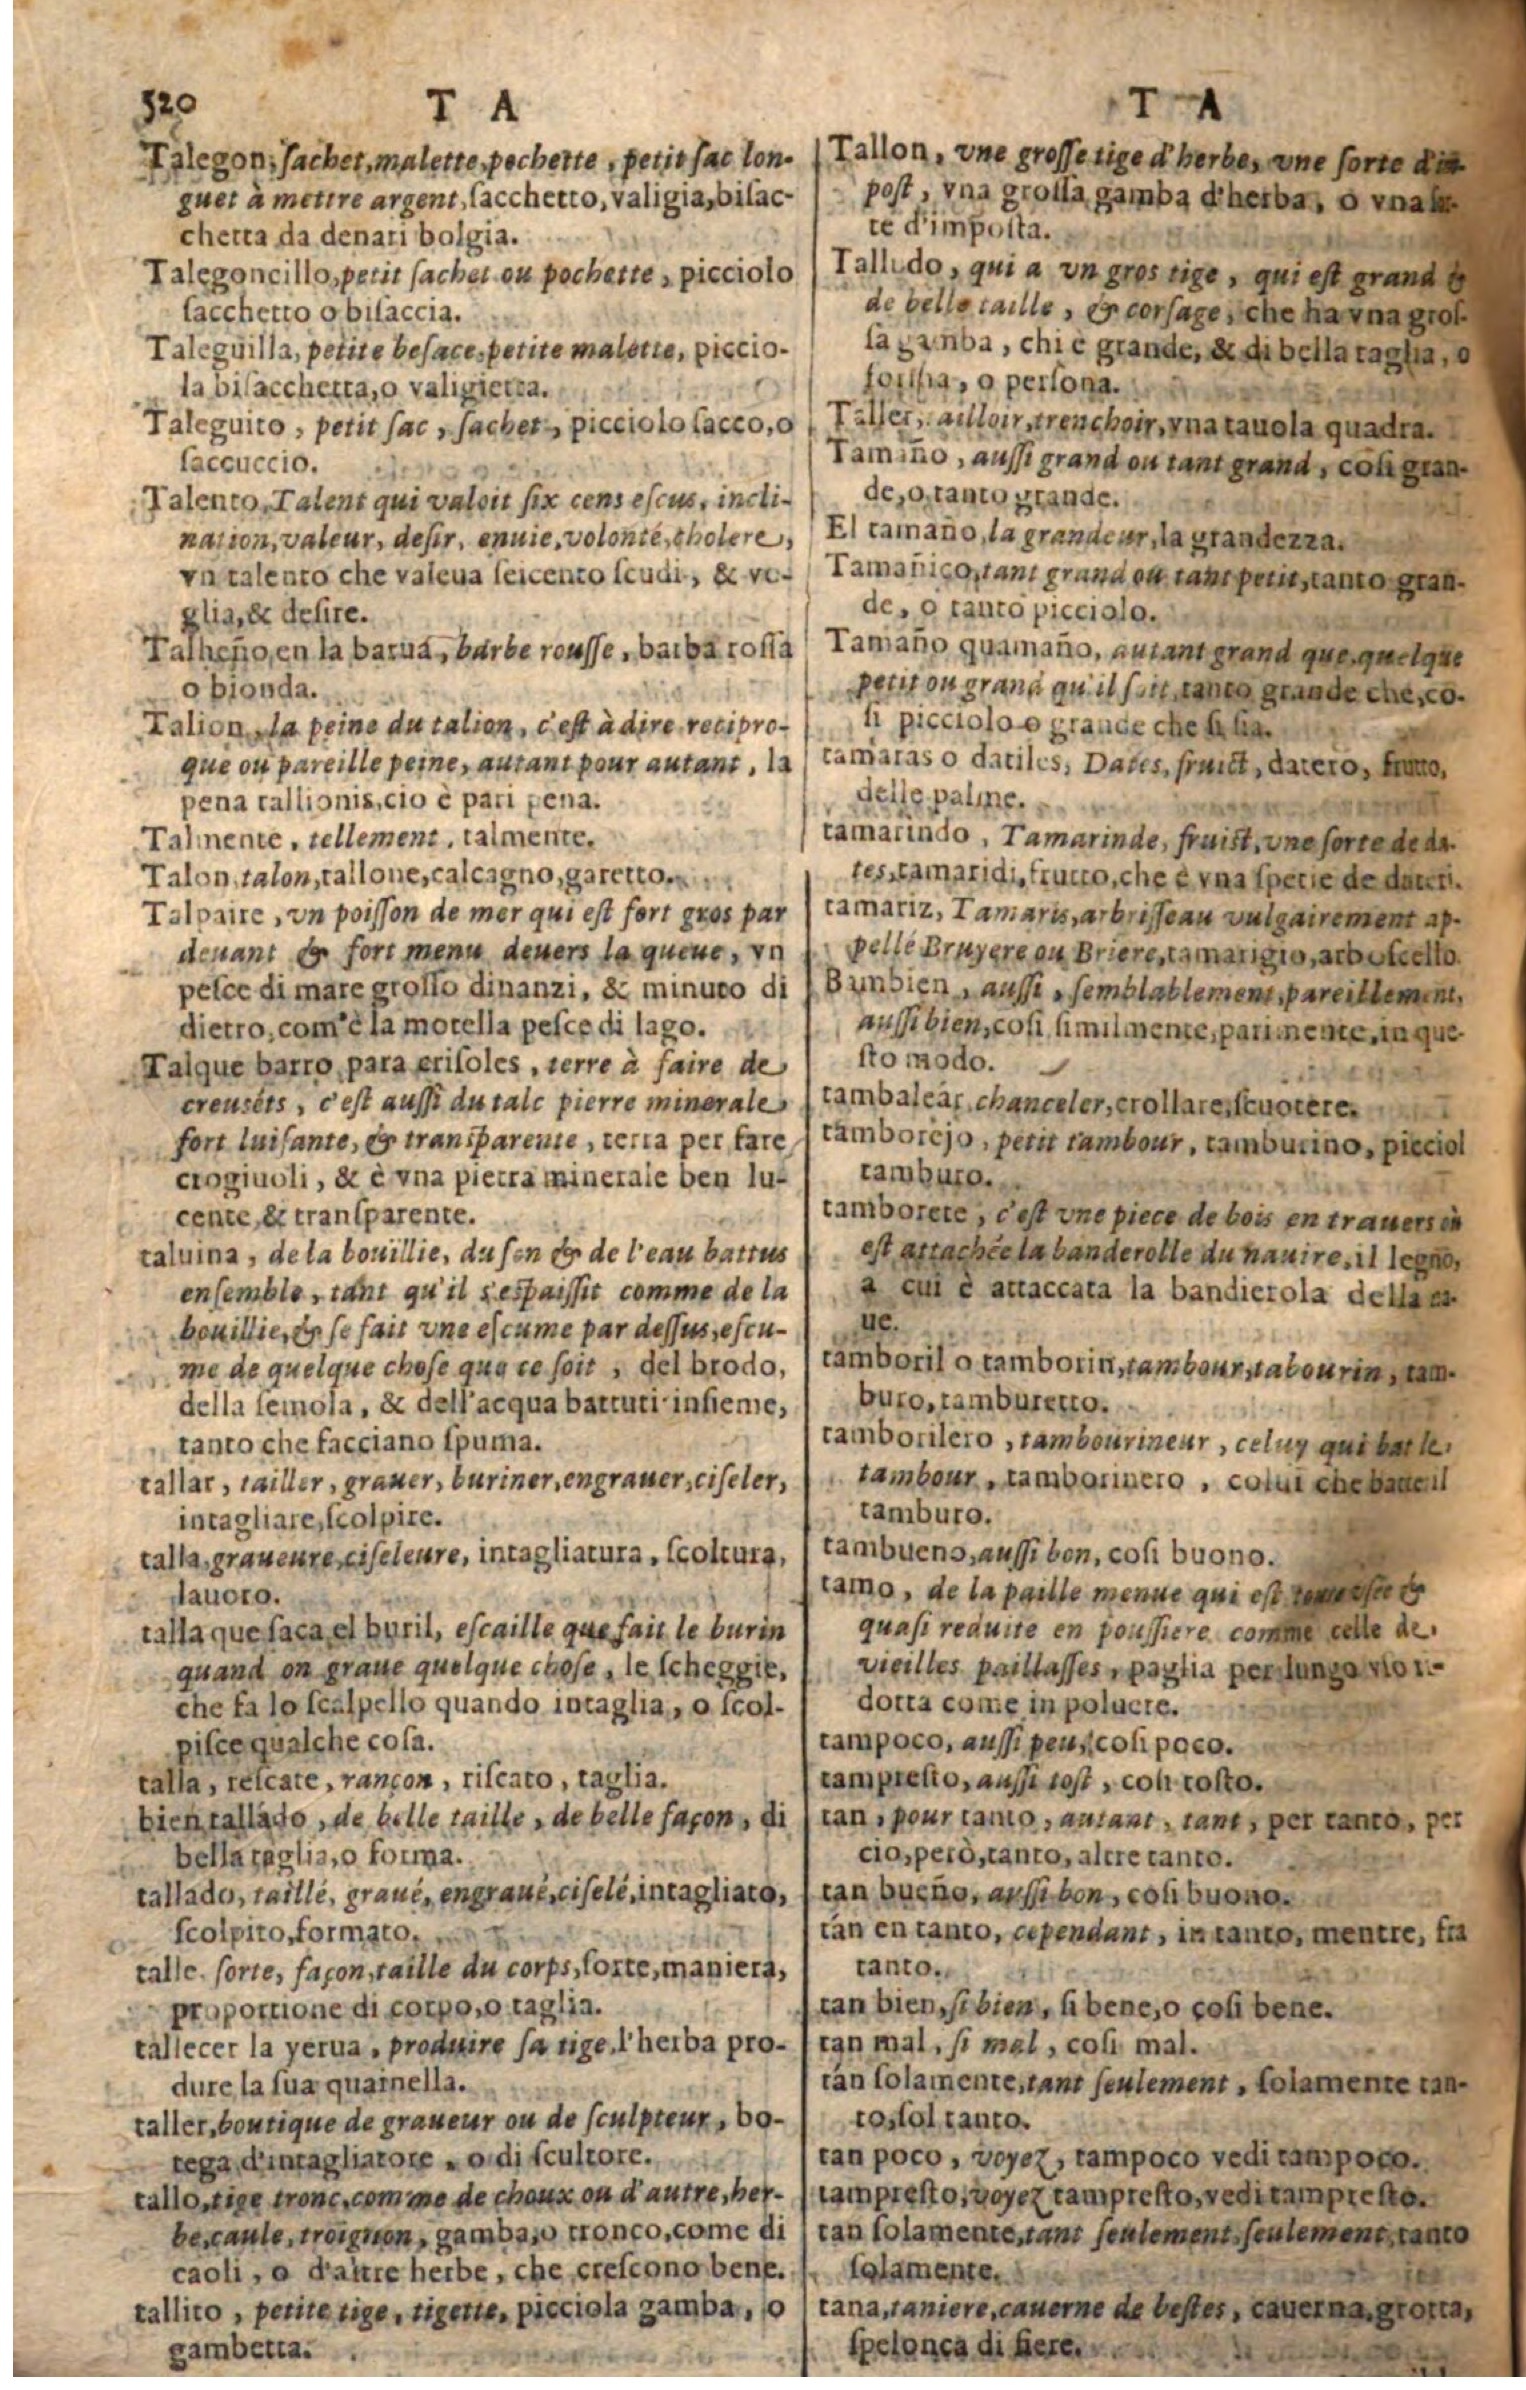 520
T A
Talegon, ſachet, malette, pochette, petit ſac lon-
guet à mettre argent, ſacchetto, valigia, biſac-
chetta da denari bolgia.
Talegoncillo, petit ſachet ou pochette, picciolo
ſacchetto o biſaccia.
Taleguilla, petite beſace, petite malette, piccio-
la biſacchetta, o valigietta.
Taleguito, petit ſac, ſachet, picciolo ſacco, o
ſaccuccio.
Talento, Talent qui valoit ſix cens eſcus, incli-
nation, valeur, deſir, enuie, volonté, cholere,
vn talento che valeua ſeicento ſcudi, & vo-
glia, & deſire.
Talheño en la barua, barbe rouſſe, barba roſſa
o bionda.
Talion, la peine du talion, c'eſt à dire recipro-
que ou pareille peine, autant pour autant, la
pena tallionis, cio è pari pena.
Talmente, tellement, talmente.
Talon, talon, tallone, calcagno, garetto.
Talpaire, vn poiſſon de mer qui eſt fort gros par
deuant & fort menu deuers la queue, vn
peſce di mare groſſo dinanzi, & minuto di
dietro, com'è la motella peſce di lago.
Talque barro para criſoles, terre à faire de
creuſets, c'eſt auſſi du talc pierre minerale
fort luiſante, & tranſparente, terra per fare
crogiuoli, & è vna pietra minerale ben lu-
cente, & tranſparente.
taluina, de la bouillie, du ſon & de l'eau battus
enſemble, tant qu'il s'eſpaiſſit comme de la
bouillie, & ſe fait vne eſcume par deſſus, eſcu-
me de quelque choſe que ce ſoit, del brodo,
della ſemola, & dell'acqua battuti inſieme,
tanto che facciano ſpuma.
tallar, tailler, grauer, buriner, engrauer, ciſeler,
intagliare, ſcolpire.
talla, graueure, ciſeleure, intagliatura, ſcoltura,
lauoro.
talla que ſaca el buril, eſcaille que fait le burin
quand on graue quelque choſe, le ſcheggie,
che fa lo ſcalpello quando intaglia, o ſcol-
piſce qualche coſa.
talla, reſcate, rançon, riſcato, taglia.
bien tallado, de belle taille, de belle façon, di
bella taglia, o forma.
tallado, taillé, graué, engraué, ciſelé, intagliato,
ſcolpito, formato.
talle, ſorte, façon, taille du corps, ſorte, maniera,
proportione di corpo, o taglia.
tallecer la yerua, produire ſa tige, l'herba pro-
dure la ſua quainella.
taller, boutique de graueur ou de ſculpteur, bo-
tega d'intagliatore, o di ſcultore.
tallo, tige tronc, comme de choux ou d'autre, her-
be, caule, troignon, gamba, o tronco, come di
caoli, o d'altre herbe, che creſcono bene.
tallito, petite tige, tigette, picciola gamba, o
gambetta.
T A
Tallon, vne groſſe tige d'herbe, vne ſorte d'im-
poſt, vna groſſa gamba d'herba, o vna ſor-
te d'impoſta.
Talludo, qui a vn gros tige, qui eſt grand &
de belle taille, & corſage, che ha vna groſ-
ſa gamba, chi è grande, & di bella taglia, o
o perſona.
Taller, ailloir, trenchoir, vna tauola quadra.
Tamaño, auſſi grand ou tant grand, coſi gran-
de, o tanto grande.
El tamaño, la grandeur, la grandezza.
Tamañico, tant grand ou tant petit, tanto gran-
de, o tanto picciolo.
Tamaño quamaño, autant grand que, quelque
petit ou grand qu'il ſoit, tanto grande che, co-
ſi picciolo o grande che ſi ſia.
tamaras o datiles, Dates, fruict, datero, frutto,
delle palme.
tamarindo, Tamarinde, fruict, vne ſorte de da-
tes, tamaridi, frutto, che è vna ſpetie de dateri.
tamariz, Tamaris, arbriſſeau vulgairement ap-
pellé Bruyere ou Briere, tamarigio, arboſcello.
Bunbien, auſſi, ſemblablement, pareillement,
auſſi bien, coſi, ſimilmente, parimente, in que-
ſto modo.
tambalear, chanceler, crollare, ſcuotere.
tamborejo, petit tambour, tamburino, picciol
tamburo.
tamborete, c'eſt vne piece de bois en trauers où
eſt attachée la banderolle du nauire, il legno,
a cui è attaccata la bandierola della na-
ue.
tamboril o tamborin, tambour, tabourin, tam-
buro, tamburetto.
tamborilero, tambourineur, celuy qui bat le
tambour, tamborinero, colui che batte il
tamburo.
tambueno, auſſi bon, coſi buono.
tamo, de la paille menue qui eſt &
quaſi reduite en pouſſiere comme celle de
vieilles paillaſſes, paglia per lungo vſo ri-
dotta come in poluere.
tampoco, auſſi peu, coſi poco.
tampreſto, auſſi toſt, coſi toſto.
tan, pour tanto, autant, tant, per tanto, per
cio, però, tanto, altre tanto.
tan bueño, auſſi bon, coſi buono.
tán en tanto, cependant, in tanto, mentre, fra
tanto.
tan bien, ſi bien, ſi bene, o coſi bene.
tan mal, ſi mal, coſi mal.
tán ſolamente, tant ſeulement, ſolamente tan-
to, ſol tanto.
tan poco, voyez, tampoco vedi tampoco.
tampreſto, voyez tampreſto, vedi tampreſto.
tan ſolamente, tant ſeulement, ſeulement, tanto
ſolamente.
tana, taniere, cauerne de beſtes, cauerna, grotta,
ſpelonca di fiere.